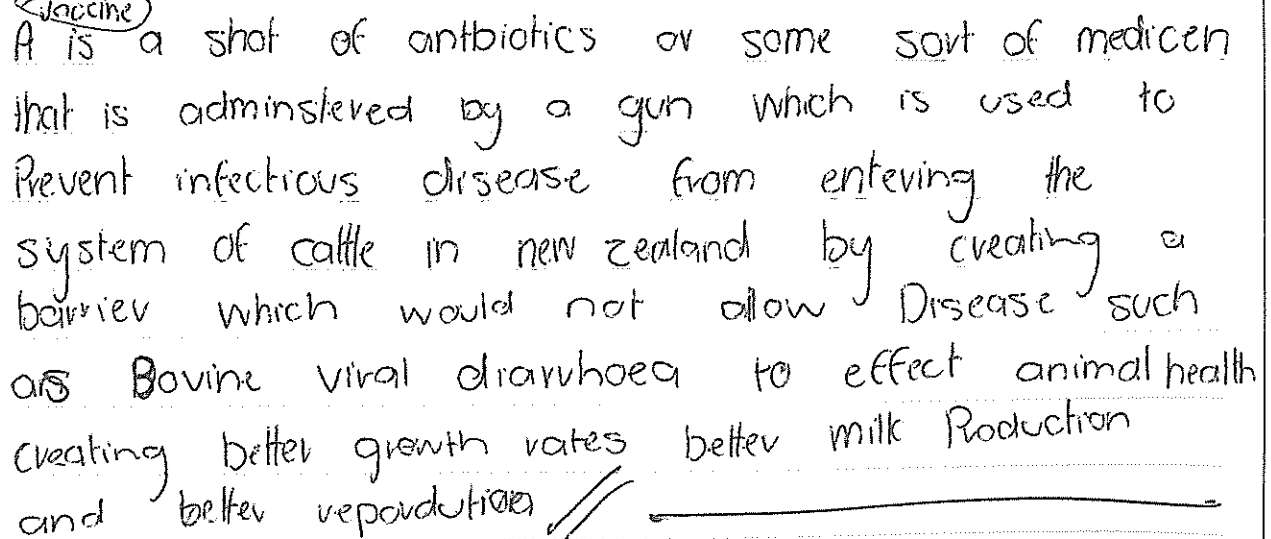 vaccine
A is a shot of antbiotics or some sort of medicen
that is adminstered by a gun which is used to
Prevent infectious disease from entering the
system of cattle in new zealand by creating a
barrier which would not allow Disease such
as Bovine viral diarrhoea to effect animal health
creating better growth rates better milk Production
and better repordution